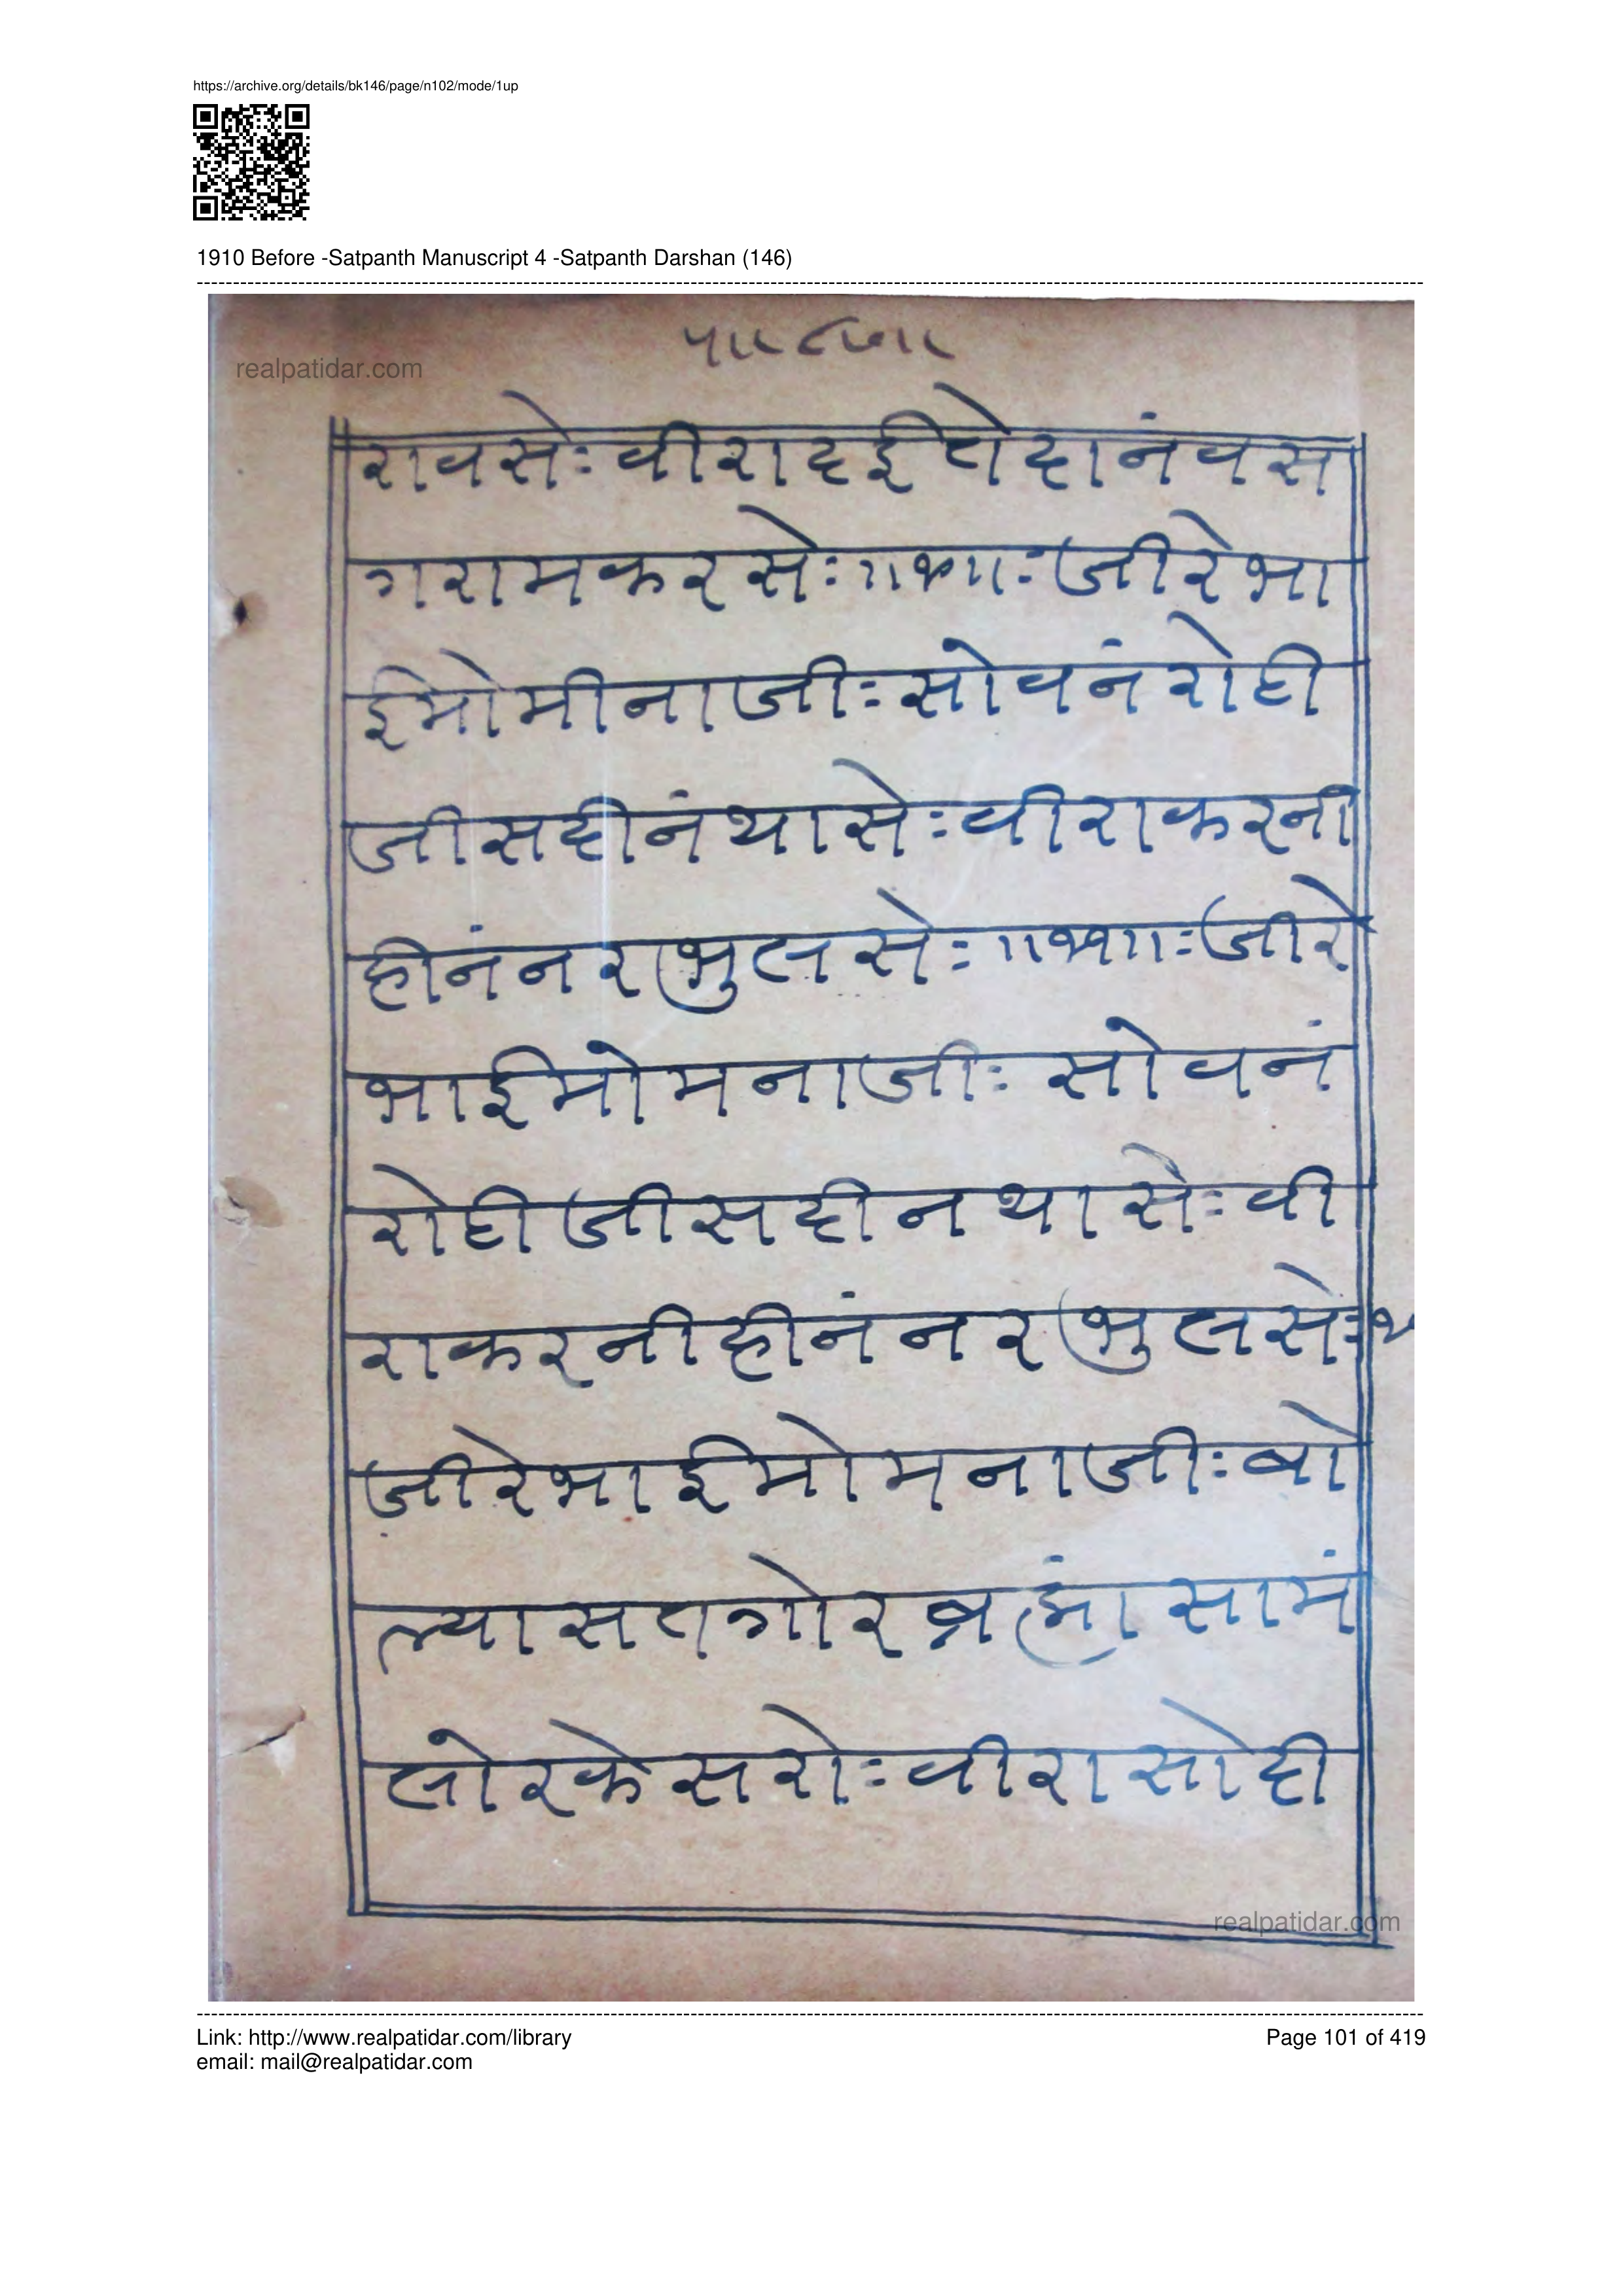 https://archive.org/details/bk146/page/n102/mode/1up
1910 Before -Satpanth Manuscript 4 -Satpanth Darshan (146)
realpatidar.com
रावसेः वीरा दई तो दानं वस
गराम करसेः ॥ ॥ः जीरे भा
ई मोमीना जीः सोवनं रोही
जी सहीनं थासेः वीरा करनी
हीनं नर भुलसेः ॥ ॥ः जीरे
भाई मोमना जीः सोवनं
रोही जी सही न थासेः वी
रा करनी हीनं नर भुलसेः
जीरे भाई मोमना जीः बो
ल्या सतगोर ब्रह्मां सामं
लोर के सरोः वीरा सोही
realpatidar.com
Link: http://www.realpatidar.com/library
Page 101 of 419
email: mail@realpatidar.com